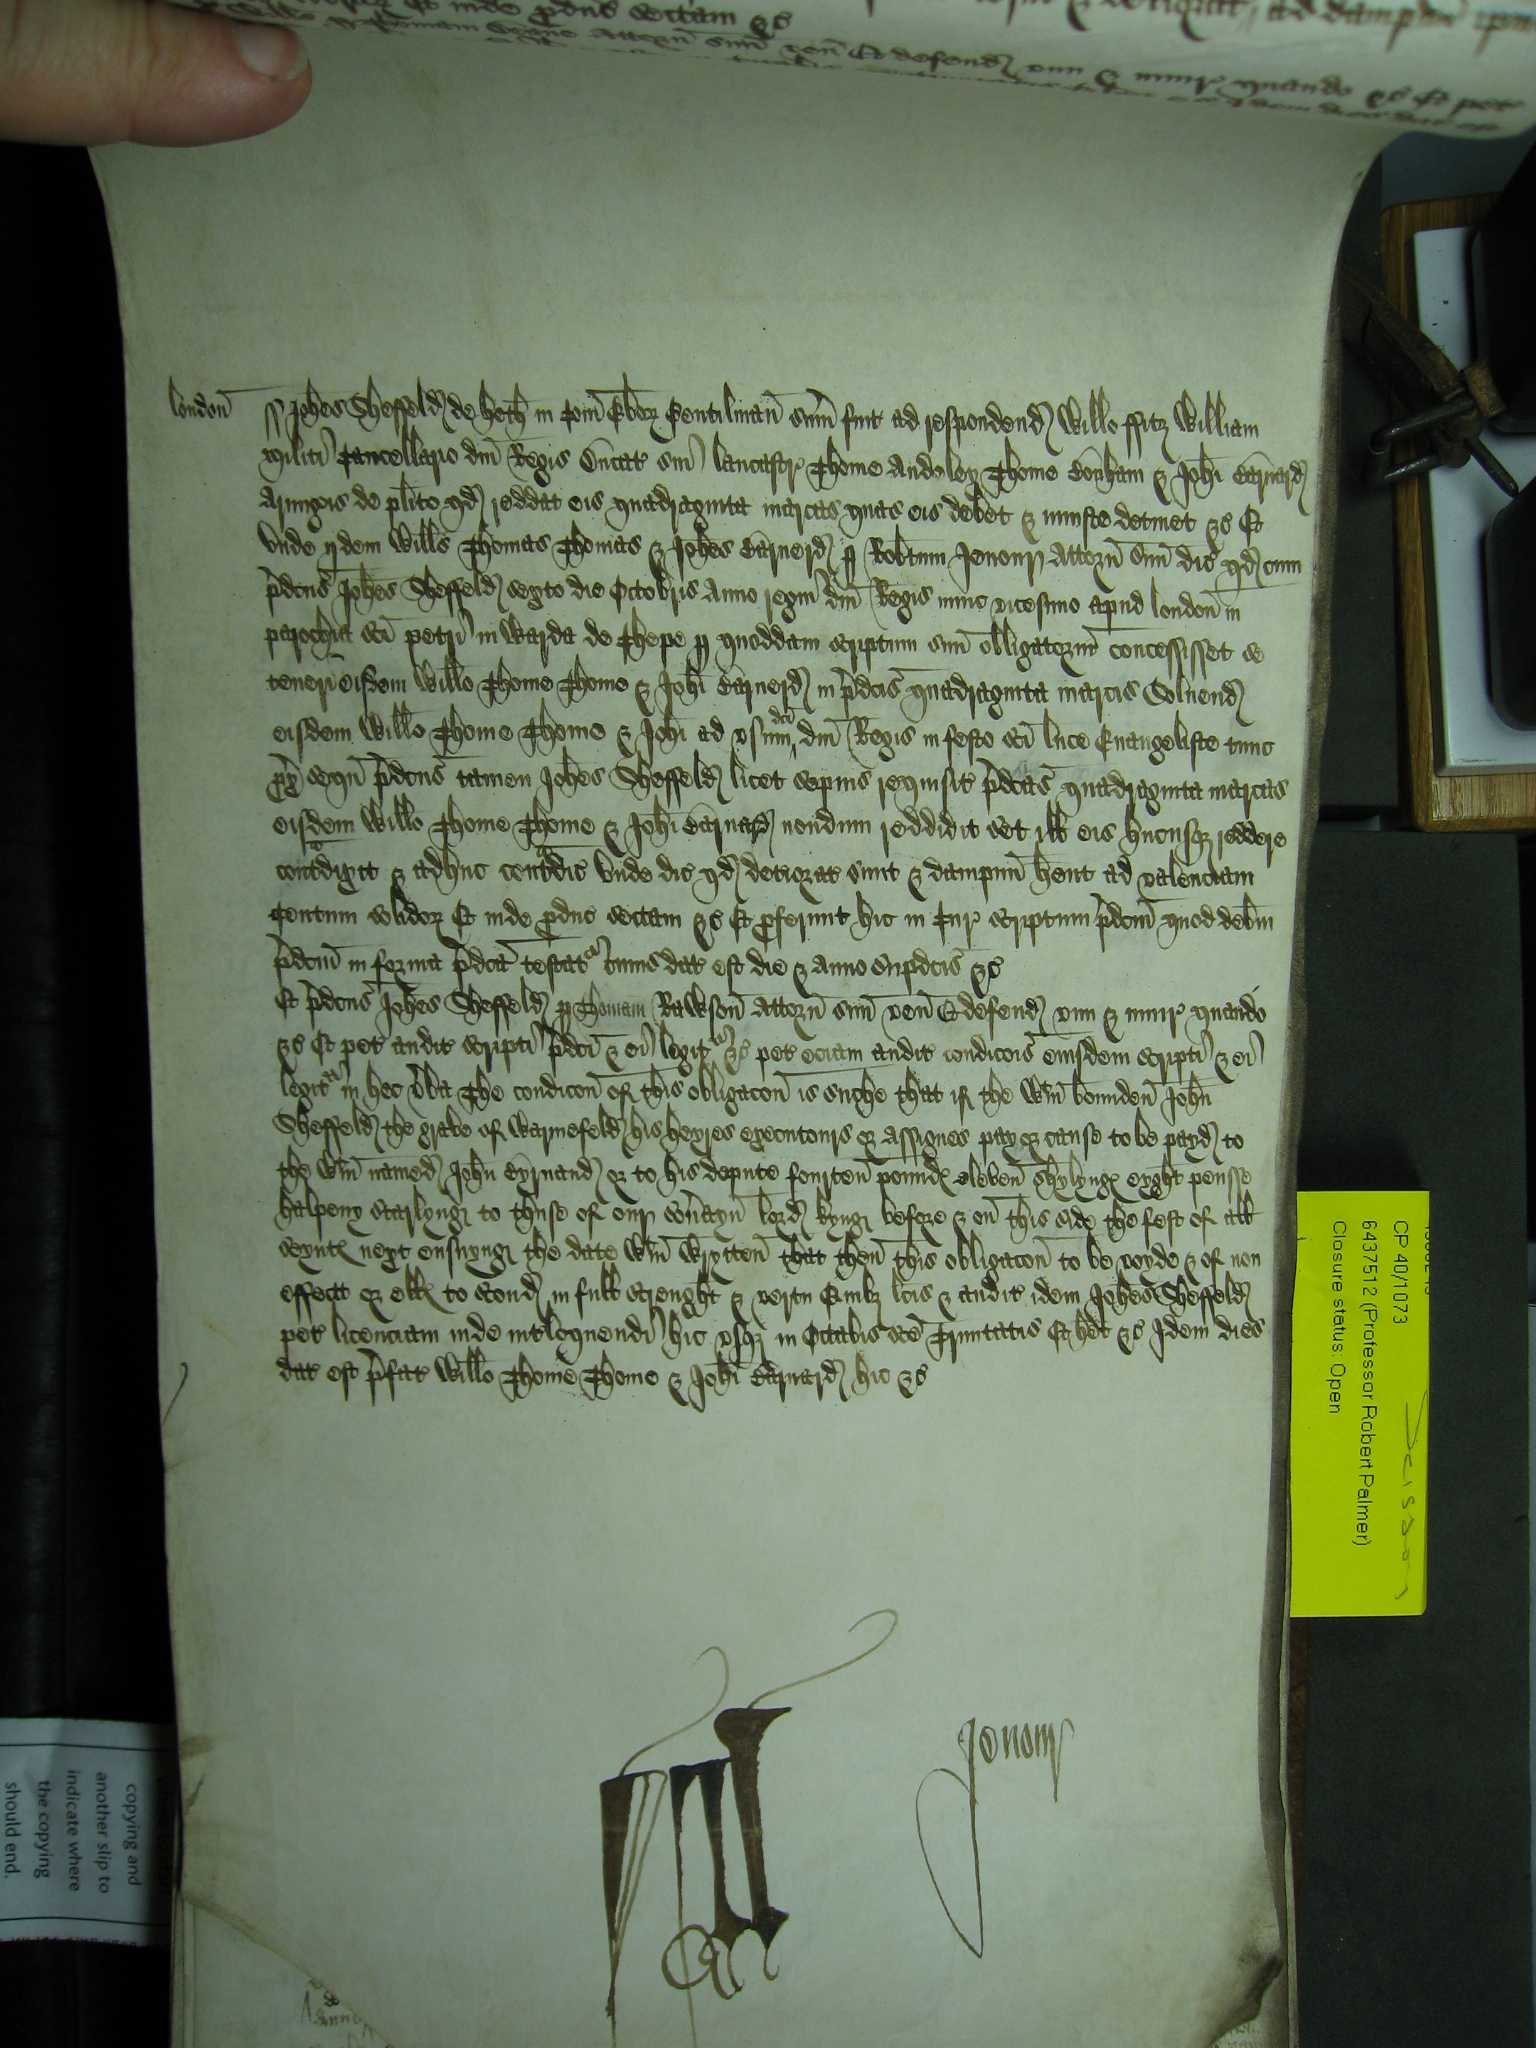 London ss Johes Sheffeld de heth in Com Ebor Gentilman sum fuit ad respondend Willo ffitz William
militi Cancellario dni Regis Ducat sui lancastr Thome Audeley Thome Bonham & Johi Barnard
Armigis de plito qd reddat eis quadraginta marcas quas eis debet & iniuste detinet &c Et
vnde ijdem Willms Thomas Thomas & Johes Barnerd p Robtum Jenour Attorn suu dic qd cum
pdcus Johes Sheffeld sexto die Octobris Anno regni dni Regis nunc vicesimo apud london in
parochia sci petri in warda de Chepe p quoddam scriptum suu obligatoriu concessisset se
teneri eisdem Willo Thome Thome & Johi Barnerd in pdcis quadraginta marcis Soluend
eisdem Willo Thome Thome & Johi ad vsum dci dni Regis in festo sci luce Euangeliste tunc
px sequn pdcus tamen Johes Sheffeld licet sepius requisit pdcas quadraginta marcas
eisdem Willo Thome Thome & Johi Barnard nondum reddidit set ill eis hucusq reddere
contdixit & adhuc contdic vnde dic qd deteriorat sunt & dampnu hent ad valenciam
Centum solidor Et inde pduc sectam &c Et pferunt hic in Cur scriptum pdcm quod debitu
pdcm in forma pdca testat cuius dat est die & anno supdcis &c
Et pdcus Johes Sheffeld p Thomam Rawkson Attorn suu ven Et defend vim & iniur quando
&c Et pet auditu scripti pdci & ei legit &c pet eciam auditu condicois eiusdem scripti & ei
legit in hec vba The condicon of this obligacon is suche that if the wtin bounden John
Sheffeld the grave of Warmefeld his heyres executours or assignes pay or cause to be payd to
the wtin named John Byrnand or to his depute fourten pound eleven shylyng eyght pensse
halpeny starlyng to thuse of our soverayn lord kyng before & on this side the fest of all
seynt next ensuyng the date wtin wrytten that then this obligacon to be voyde & of non
effect or ell to stond in full strenght & vertu Quibz lcis & audit idem Johes Sheffeld
pet licenciam inde intloquendi hic vsq in Octabis sce Trinitatis Et het &c Idem dies
dat est pfat Willo Thome Thome & Johi Barnard hic &c
Jenour
CP 40/1073
6437512 (Professor Robert Palmer)
Closure status: Open
copying and
another slip to
indicate where
the copying
should end.